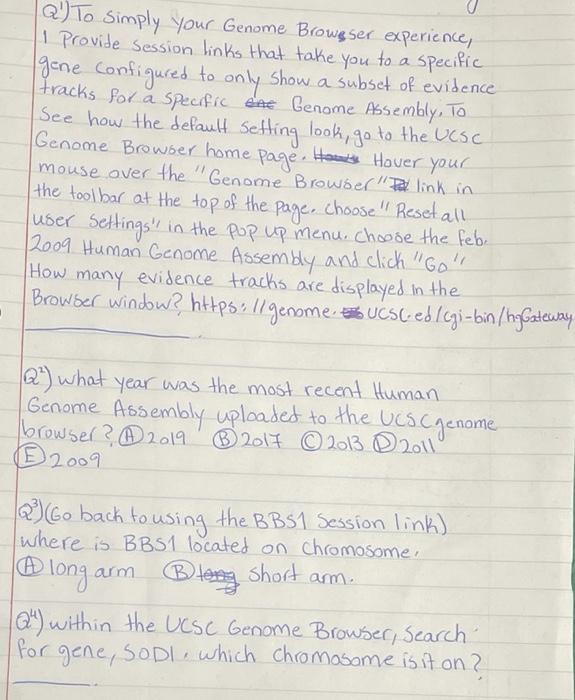 Q1) To simply your Genome Browser experience,
I Provide session links that take you to a specific
gene configured to only show a subset of evidence
tracks for a specific Genome Assembly. To
See how the default setting look, go to the UCSC
Genome Browser home page. Hover your
mouse over the "Genome Browser" link in
the toolbar at the top of the page. choose "Reset all
user settings" in the pop up menu. choose the feb.
2009 Human Genome Assembly and click "Go"
How many evidence tracks are displayed in the
Browser window? https://genome.ucsc.ed/cgi-bin/hgGateway
Q2) what year was the most recent Human
Genome Assembly uploaded to the UCSC genome
browser? A 2019 B 2017 C 2013 D 2011
E 2009
Q3) (Go back to using the BBS1 Session link)
where is BBS1 located on chromosome.
A long arm B short arm.
Q4) within the UCSC Genome Browser, search
for gene, SOD1. which chromosome is it on?